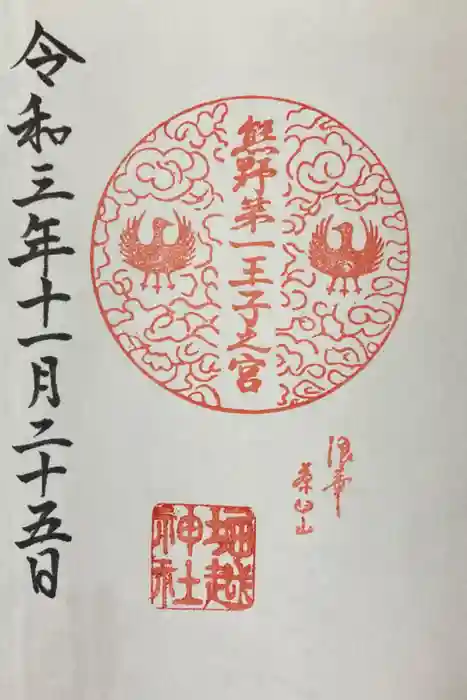 浪華
茶臼山
熊野第一王子之宮
堀越
神社
令和三年十一月二十五日